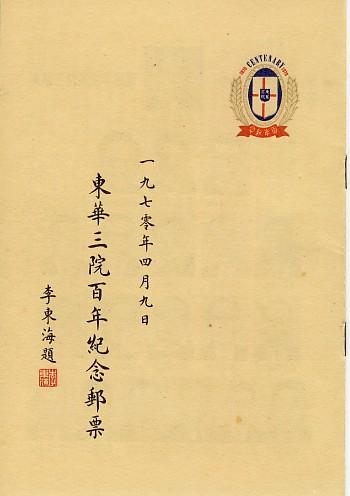 CENTENARY
1870
1970
一九七零年四月九日
東華三院百年紀念郵票
李東海題